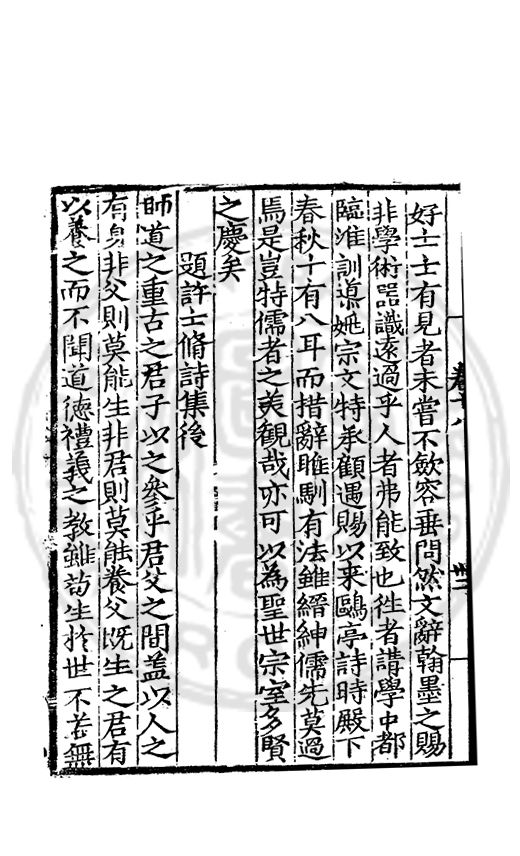 好士士有見者未嘗不歛容垂問然文辭翰墨之賜
非學術噐識遠過乎人者弗能致也徃者講學中都
臨淮訓𨗳姚宗文特承顧遇賜以来鷗亭詩時殿下
春秋十有八耳而措辭雎馴有法雖縉紳儒先莫過
焉是豈特儒者之美觀哉亦可以為聖世宗室多賢
之慶矣
題許士脩詩集後
師道之重古之君子以之參乎君父之間盖以人之
有身非父則莫能生非君則莫能養父既生之君有
以養之而不聞道德禮義之教雖苟生扵世不若無
卷十八
卅二